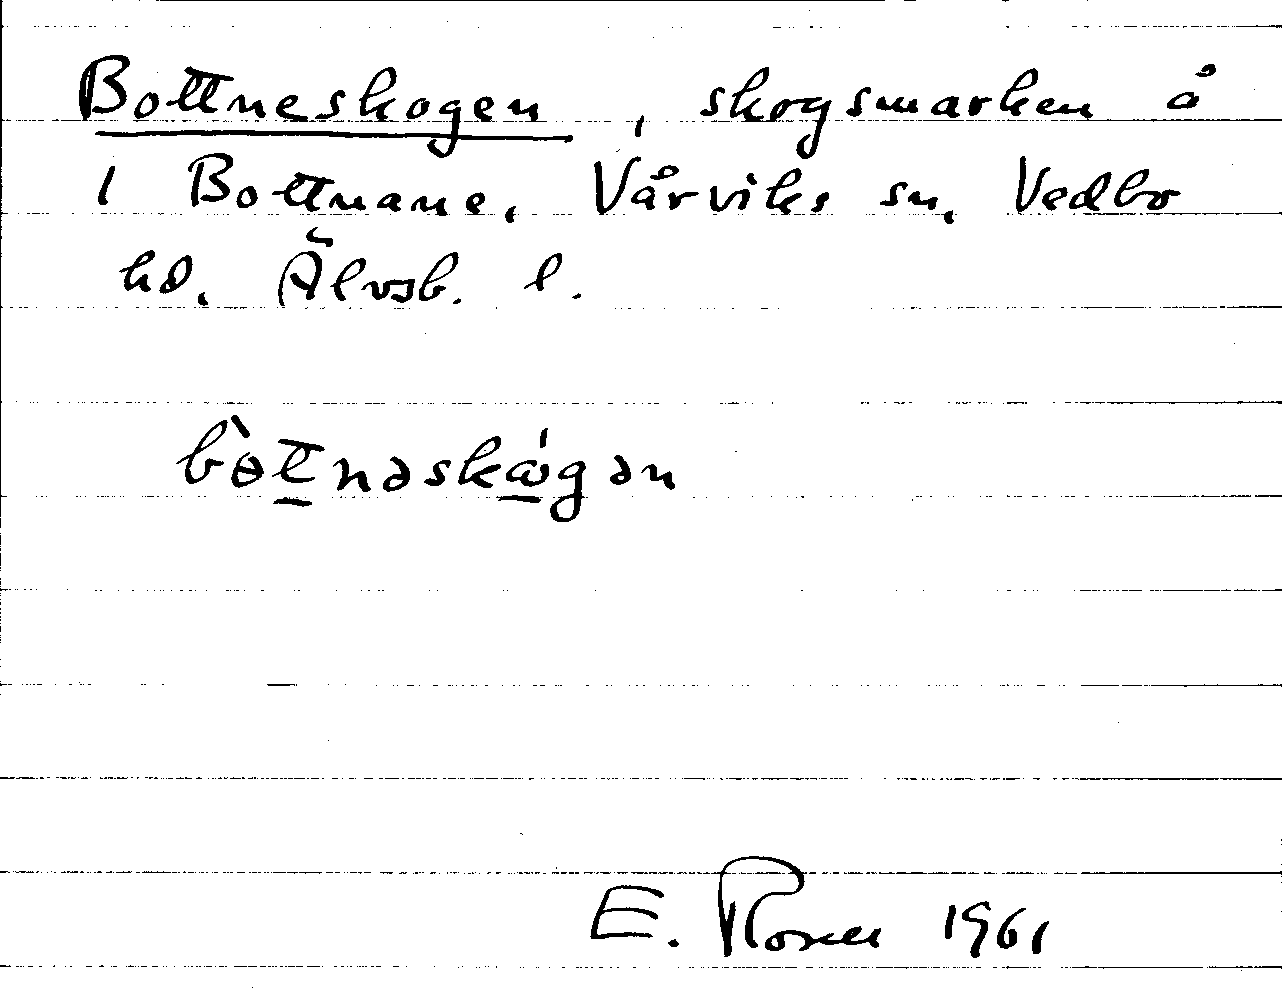 Bottneskogen, skogsmarken å
1 Bottnane, Vårviks sn, Vedbo
hd. Älvsb. l.
bòtnəskώgən
E. Rosen 1961